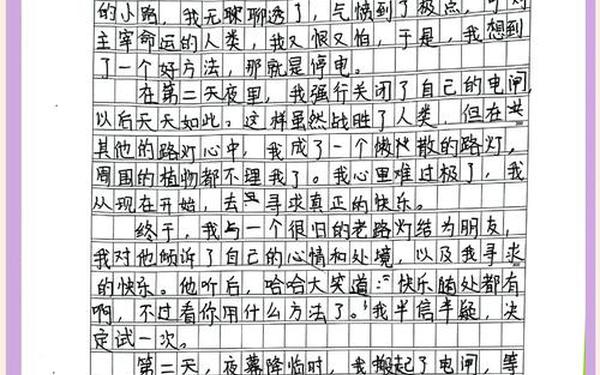 的小路，我无聊聊透了，气愤到了极点，可对
主宰命运的人类，我又恨又怕，于是，我想到
了一个好方法，那就是停电。
在第二天夜里，我强行关闭了自己的电闸，
以后天天如此。这样虽然战胜了人类，但在
其他的路灯心中，我成了一个懒散的路灯，
周围的植物都不理我了。我心里难过极了，我
从现在开始，去寻求真正的快乐。
终于，我与一个很旧的老路灯结为朋友，
我对他倾诉了自己的心情和处境，以及我寻求
的快乐。他听后，哈哈大笑道：“快乐随处都有
啊，不过看你用什么方法了。”我半信半疑，决
定试一次。
第二天，夜幕降临时，我搬起了电闸，等